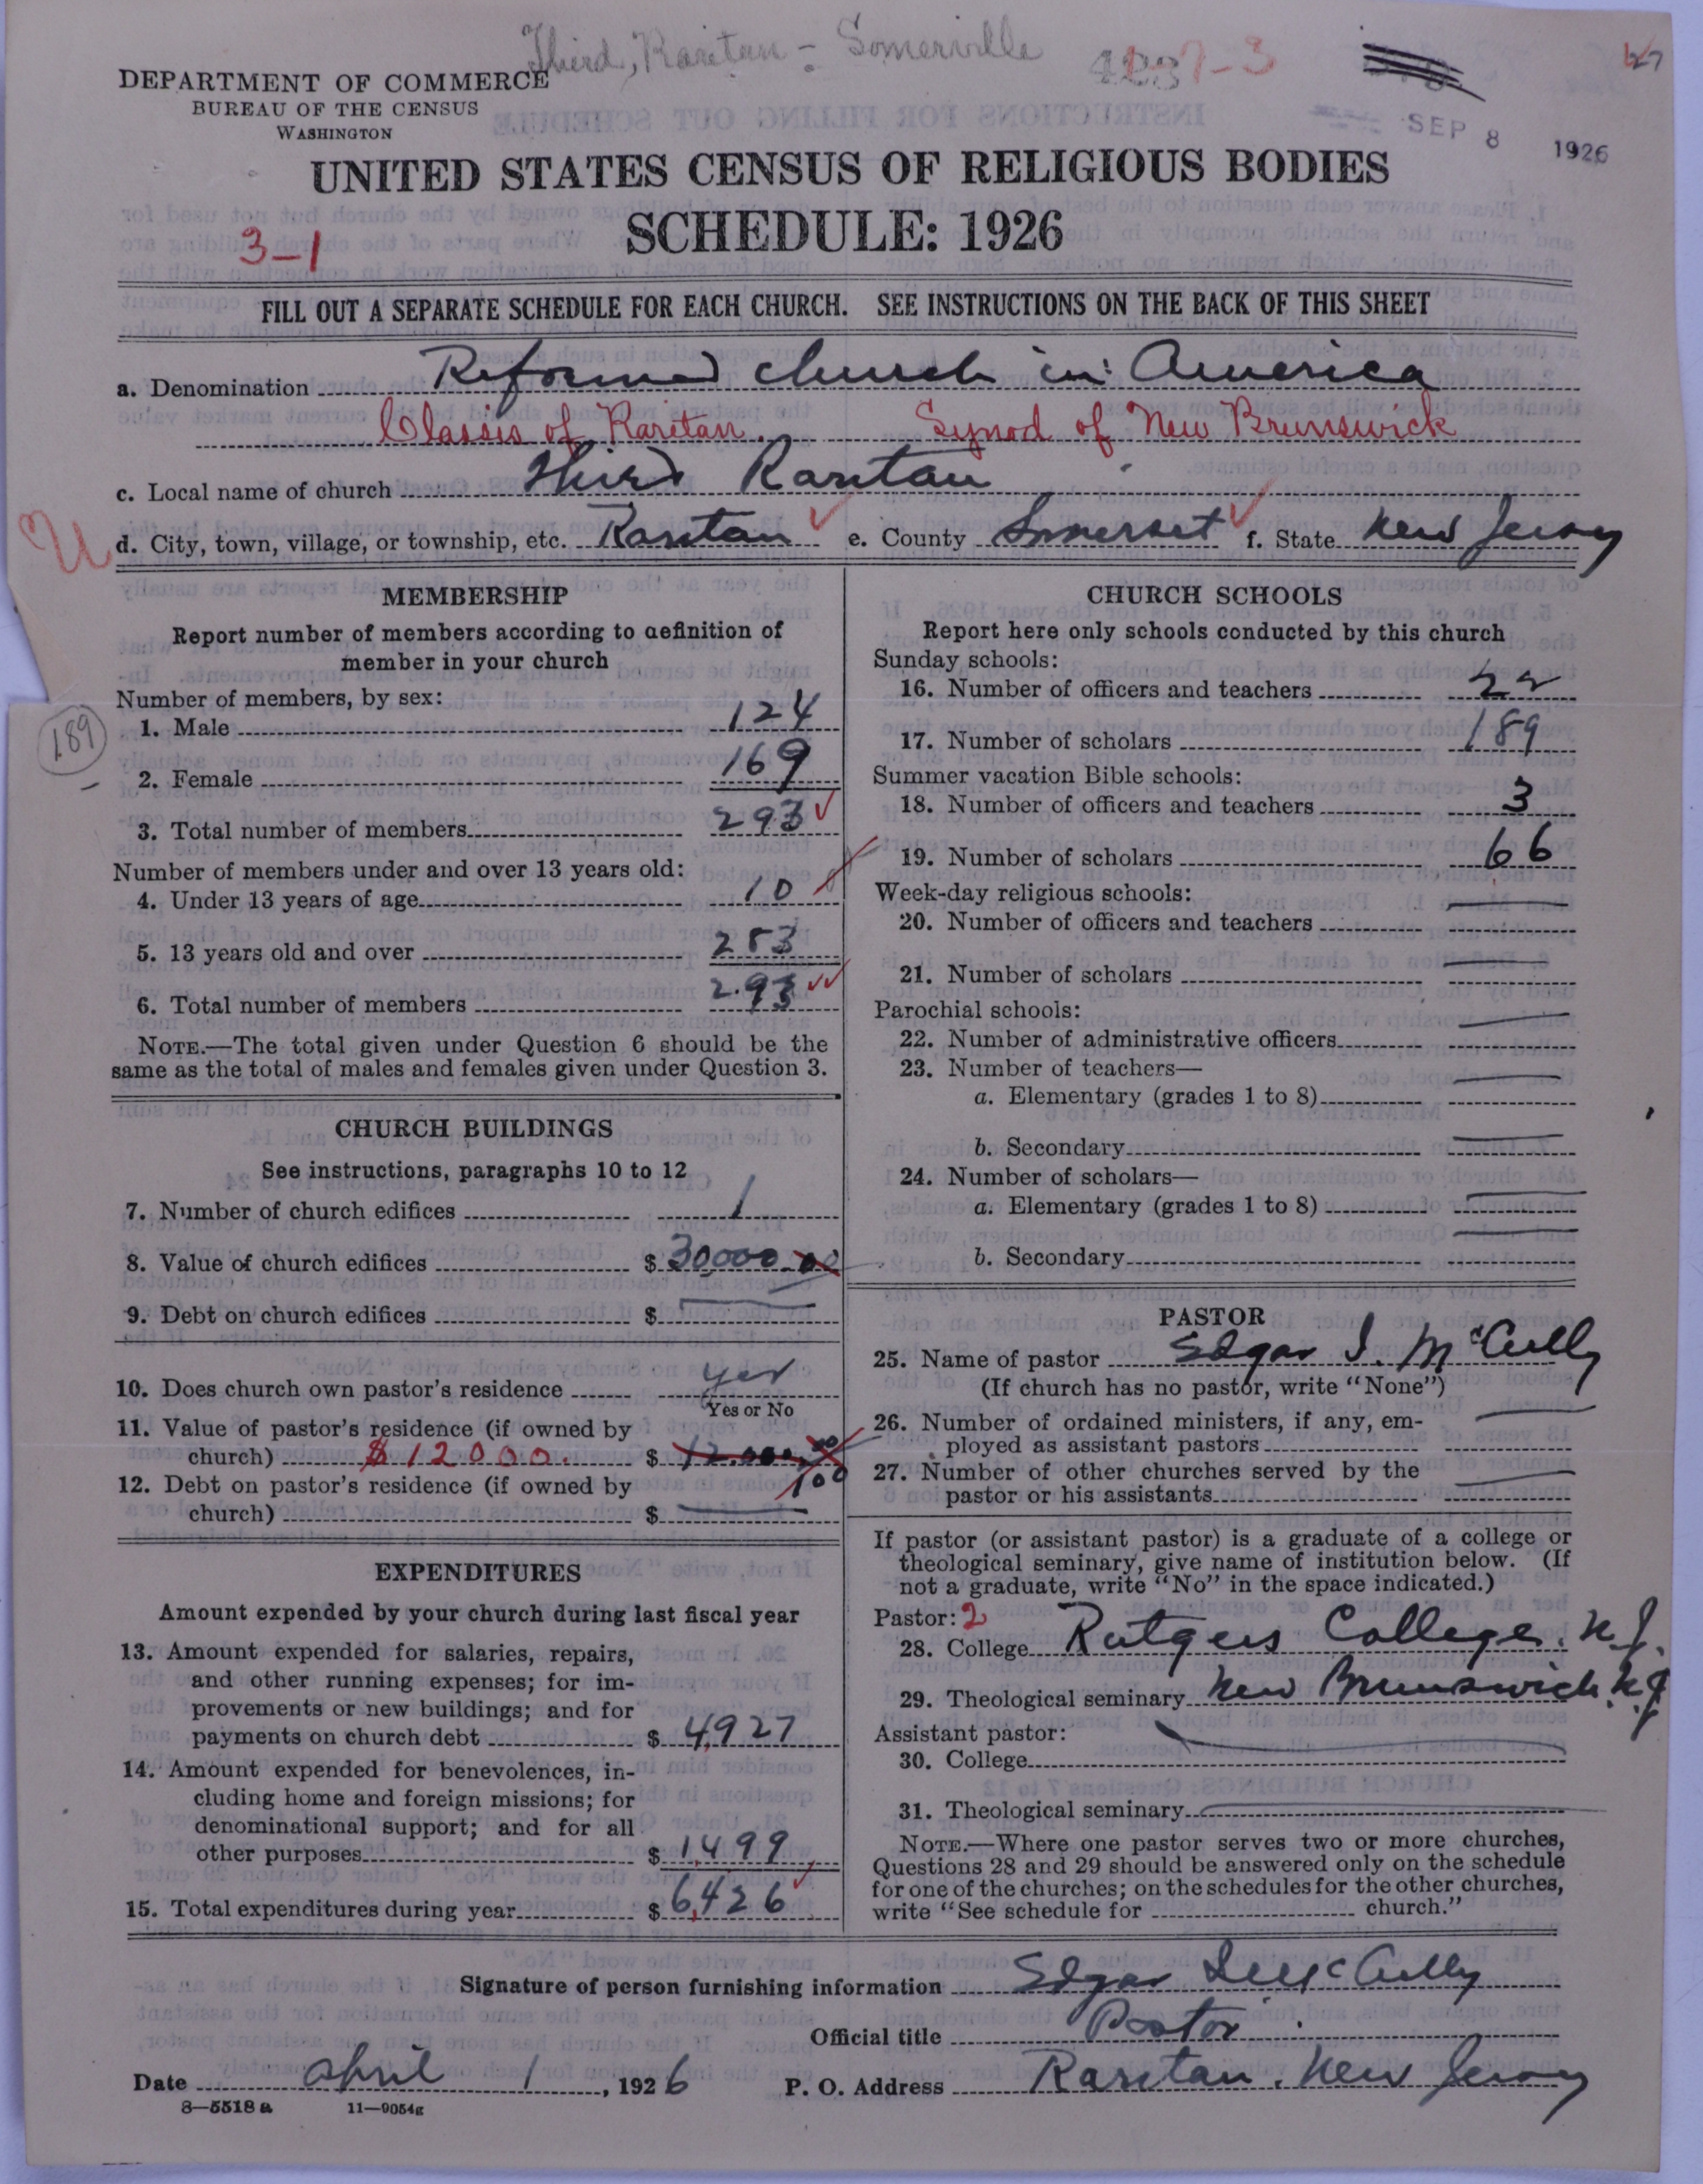 Third, Raritan - Somerville
DEPARTMENT OF COMMERCE
BUREAU OF THE CENSUS
WASHINGTON
SEP 8 1926
UNITED STATES CENSUS OF RELIGIOUS BODIES
SCHEDULE: 1926
3-1
FILL OUT A SEPARATE SCHEDULE FOR EACH CHURCH. SEE INSTRUCTIONS ON THE BACK OF THIS SHEET
a. Denomination Reformed church in America
Classis of Raritan. Synod of New Brunswick
c. Local name of church Third Raritan
U
d. City, town, village, or township, etc. Raritan e. County Somerset f. State New Jersey
MEMBERSHIP
Report number of members according to definition of
member in your church
Number of members, by sex:
189
1. Male 124
2. Female 169
3. Total number of members 293
Number of members under and over 13 years old:
4. Under 13 years of age 10
5. 13 years old and over 283
6. Total number of members 293
NOTE.—The total given under Question 6 should be the
same as the total of males and females given under Question 3.
CHURCH BUILDINGS
See instructions, paragraphs 10 to 12
7. Number of church edifices 1
8. Value of church edifices $ 30,000.00
9. Debt on church edifices $
10. Does church own pastor's residence yes
Yes or No
11. Value of pastor's residence (if owned by
church) $12000. $ 12.000.00
12. Debt on pastor's residence (if owned by
church) $
EXPENDITURES
Amount expended by your church during last fiscal year
13. Amount expended for salaries, repairs,
and other running expenses; for im-
provements or new buildings; and for
payments on church debt $ 4,927
14. Amount expended for benevolences, in-
cluding home and foreign missions; for
denominational support; and for all
other purposes $ 1,499
15. Total expenditures during year $ 6,426
CHURCH SCHOOLS
Report here only schools conducted by this church
Sunday schools:
16. Number of officers and teachers 22
17. Number of scholars 189
Summer vacation Bible schools:
18. Number of officers and teachers 3
19. Number of scholars 66
Week-day religious schools:
20. Number of officers and teachers
21. Number of scholars
Parochial schools:
22. Number of administrative officers
23. Number of teachers—
a. Elementary (grades 1 to 8)
b. Secondary
24. Number of scholars—
a. Elementary (grades 1 to 8)
b. Secondary
PASTOR
25. Name of pastor Edgar I. McCully
(If church has no pastor, write "None")
26. Number of ordained ministers, if any, em-
ployed as assistant pastors
27. Number of other churches served by the
pastor or his assistants
If pastor (or assistant pastor) is a graduate of a college or
theological seminary, give name of institution below. (If
not a graduate, write "No" in the space indicated.)
Pastor: 2
28. College Rutgers College. N.J.
29. Theological seminary New Brunswick N.J
Assistant pastor:
30. College
31. Theological seminary
NOTE.—Where one pastor serves two or more churches,
Questions 28 and 29 should be answered only on the schedule
for one of the churches; on the schedules for the other churches,
write "See schedule for church."
Signature of person furnishing information Edgar I McCully
Official title Pastor
Date April 1, 1926 P. O. Address Raritan, New Jersey
8—5518a 11—9054g